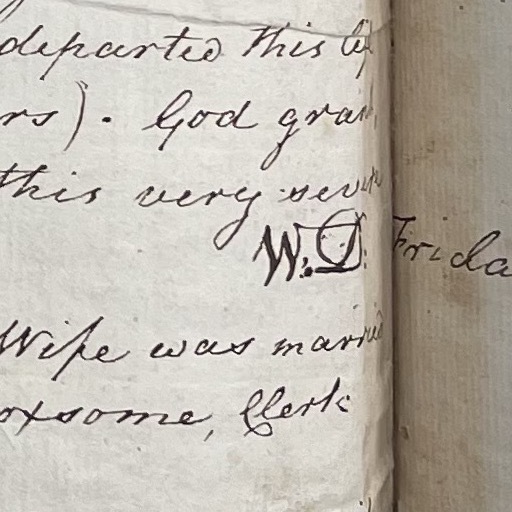 departed this
rs). God
this very
W. D. Frida
Wife was married
oxsome, Clerk